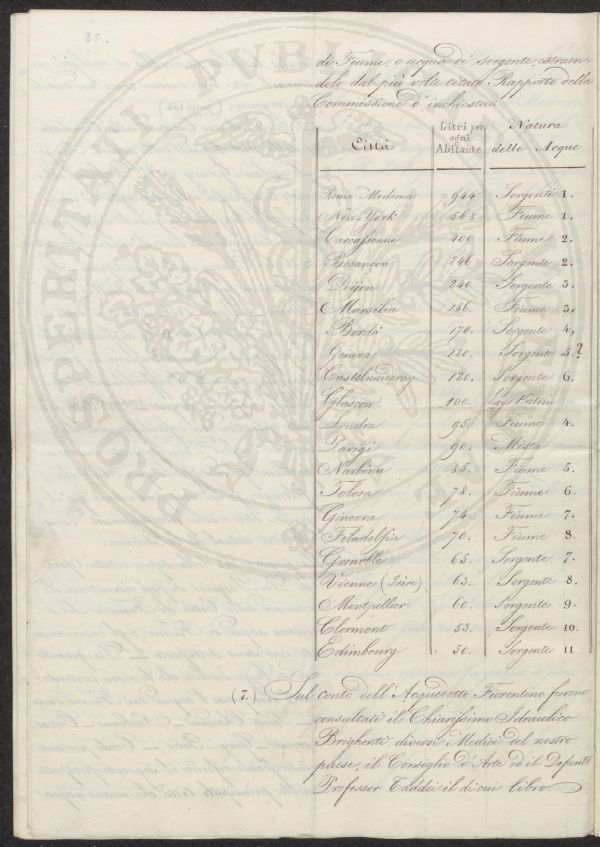 di Fiume, o acqua di Sorgente, estraen
dolo dal più volte citato Rapporto della
Commissione d'inchiesta.
Città
Litri per
ogni
Abitante
Natura
delle Acque
Roma Moderna 944 Sorgenti 1.
New-York 568 Fiume 1.
Carcassonne 400 Fiume 2.
Besançon 246 Sorgente 2.
Dijon 240 Sorgente 3.
Marsilia 186 Fiume 3.
Bordò 170. Sorgente 4,
Genova 120. Sorgente 5.?
Castelnaudary 120. Sorgente 6.
Glascow 100.
Londra 95. Fiume 4.
Parigi 90. Mista
Narbona 85. Fiume 5.
Tolosa 78. Fiume 6.
Ginevra 74. Fiume 7.
Filadelfia 70. Fiume 8.
Grenoble 65. Sorgente 7.
Vienne (Isère) 65. Sorgente 8.
Montpellier 60. Sorgente 9.
Clermont 53. Sorgente 10.
Edimbourg 50. Sorgente 11
(7.) Sul conto dell'Acquedotto Fiorentino furono
consultati il Chiarissimo Idraulico
Brighenti, diversi Medici del nostro
paese, il Consiglio d'Arte ed il Defunto
Professor Taddei il di cui libro
PROSPERITATI PVBLI